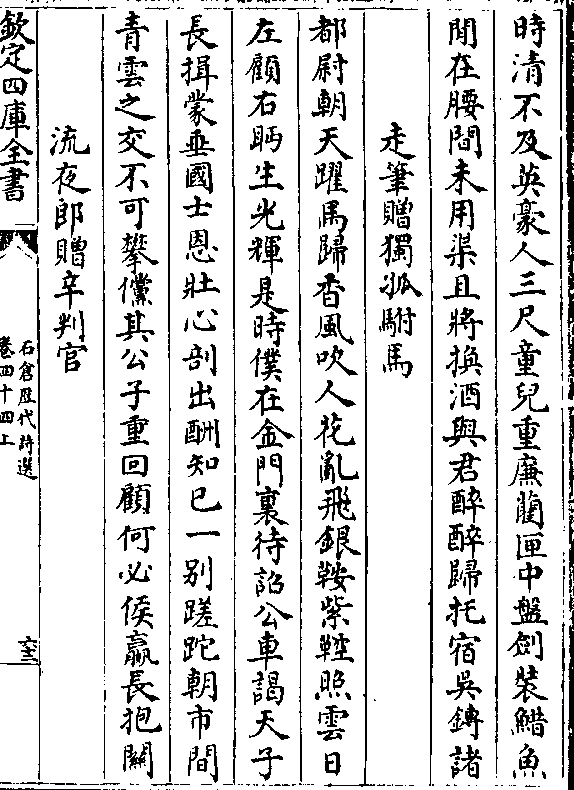 時清不及英豪人三尺童兒重廉藺匣中盤劍裝䱜魚
閒在腰間未用渠且將換酒與君醉醉歸托宿吳鏄諸
走筆贈獨孤駙馬
都尉朝天躍馬歸香風吹人花亂飛銀鞍紫鞚照雲日
左顧右眄生光輝是時僕在金門裏待詔公車謁天子
長揖蒙垂國士恩壯心剖出酬知已一别蹉跎朝市間
青雲之交不可攀儻其公子重回顧何必侯嬴長抱關
流夜郎贈辛判官
欽定四庫全書
石倉歴代詩選
卷四十四上